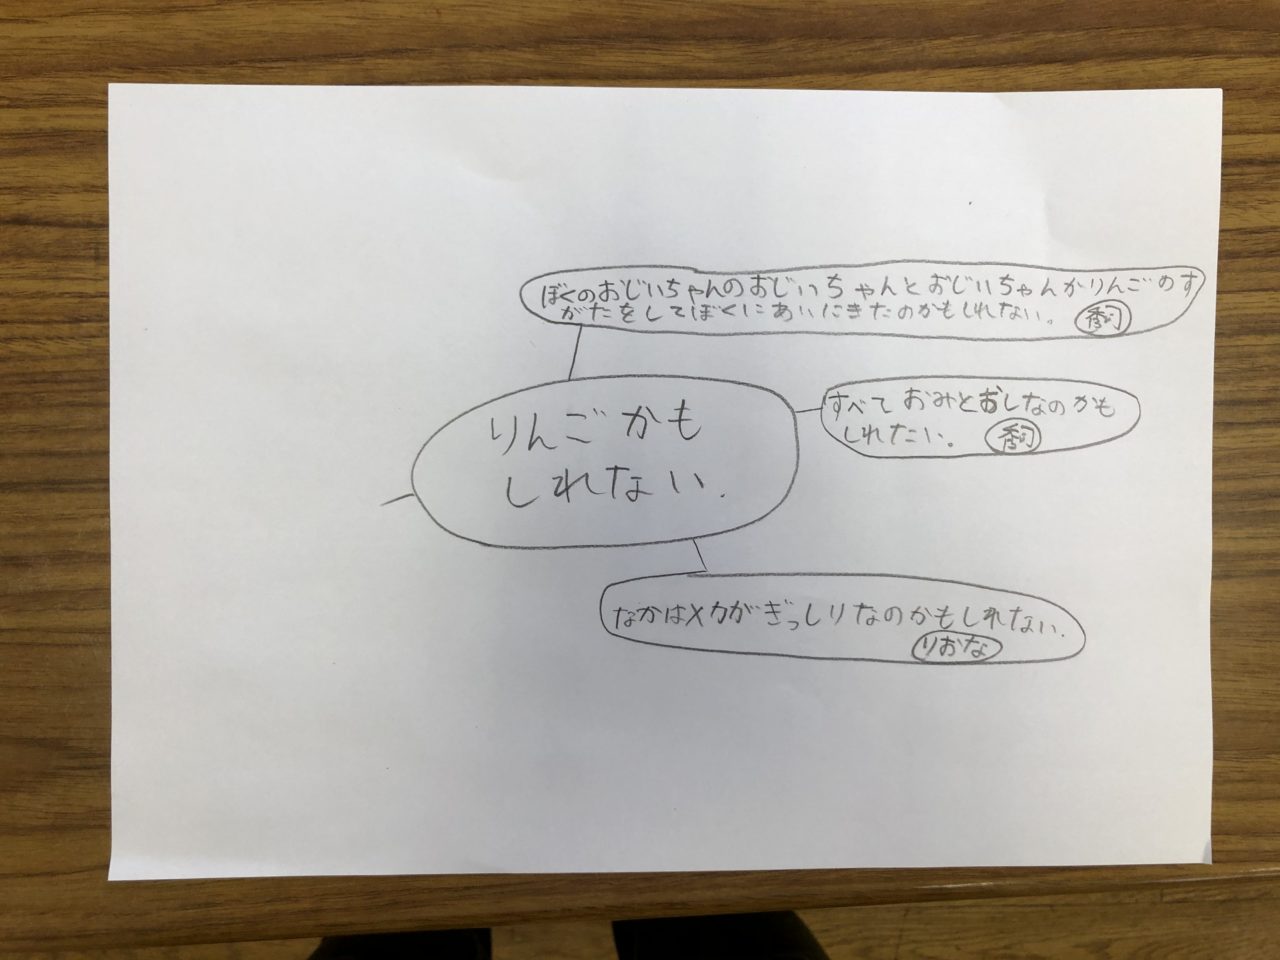 ぼくのおじいちゃんのおじいちゃんとおじいちゃんかりんごのす
がたをしてぼくにあいにきたのかもしれない。
りんごかも
しれない.
すべて おみとおしなのかも
しれたい。
なかはメカがぎっしりなのかもしれない.
りおな